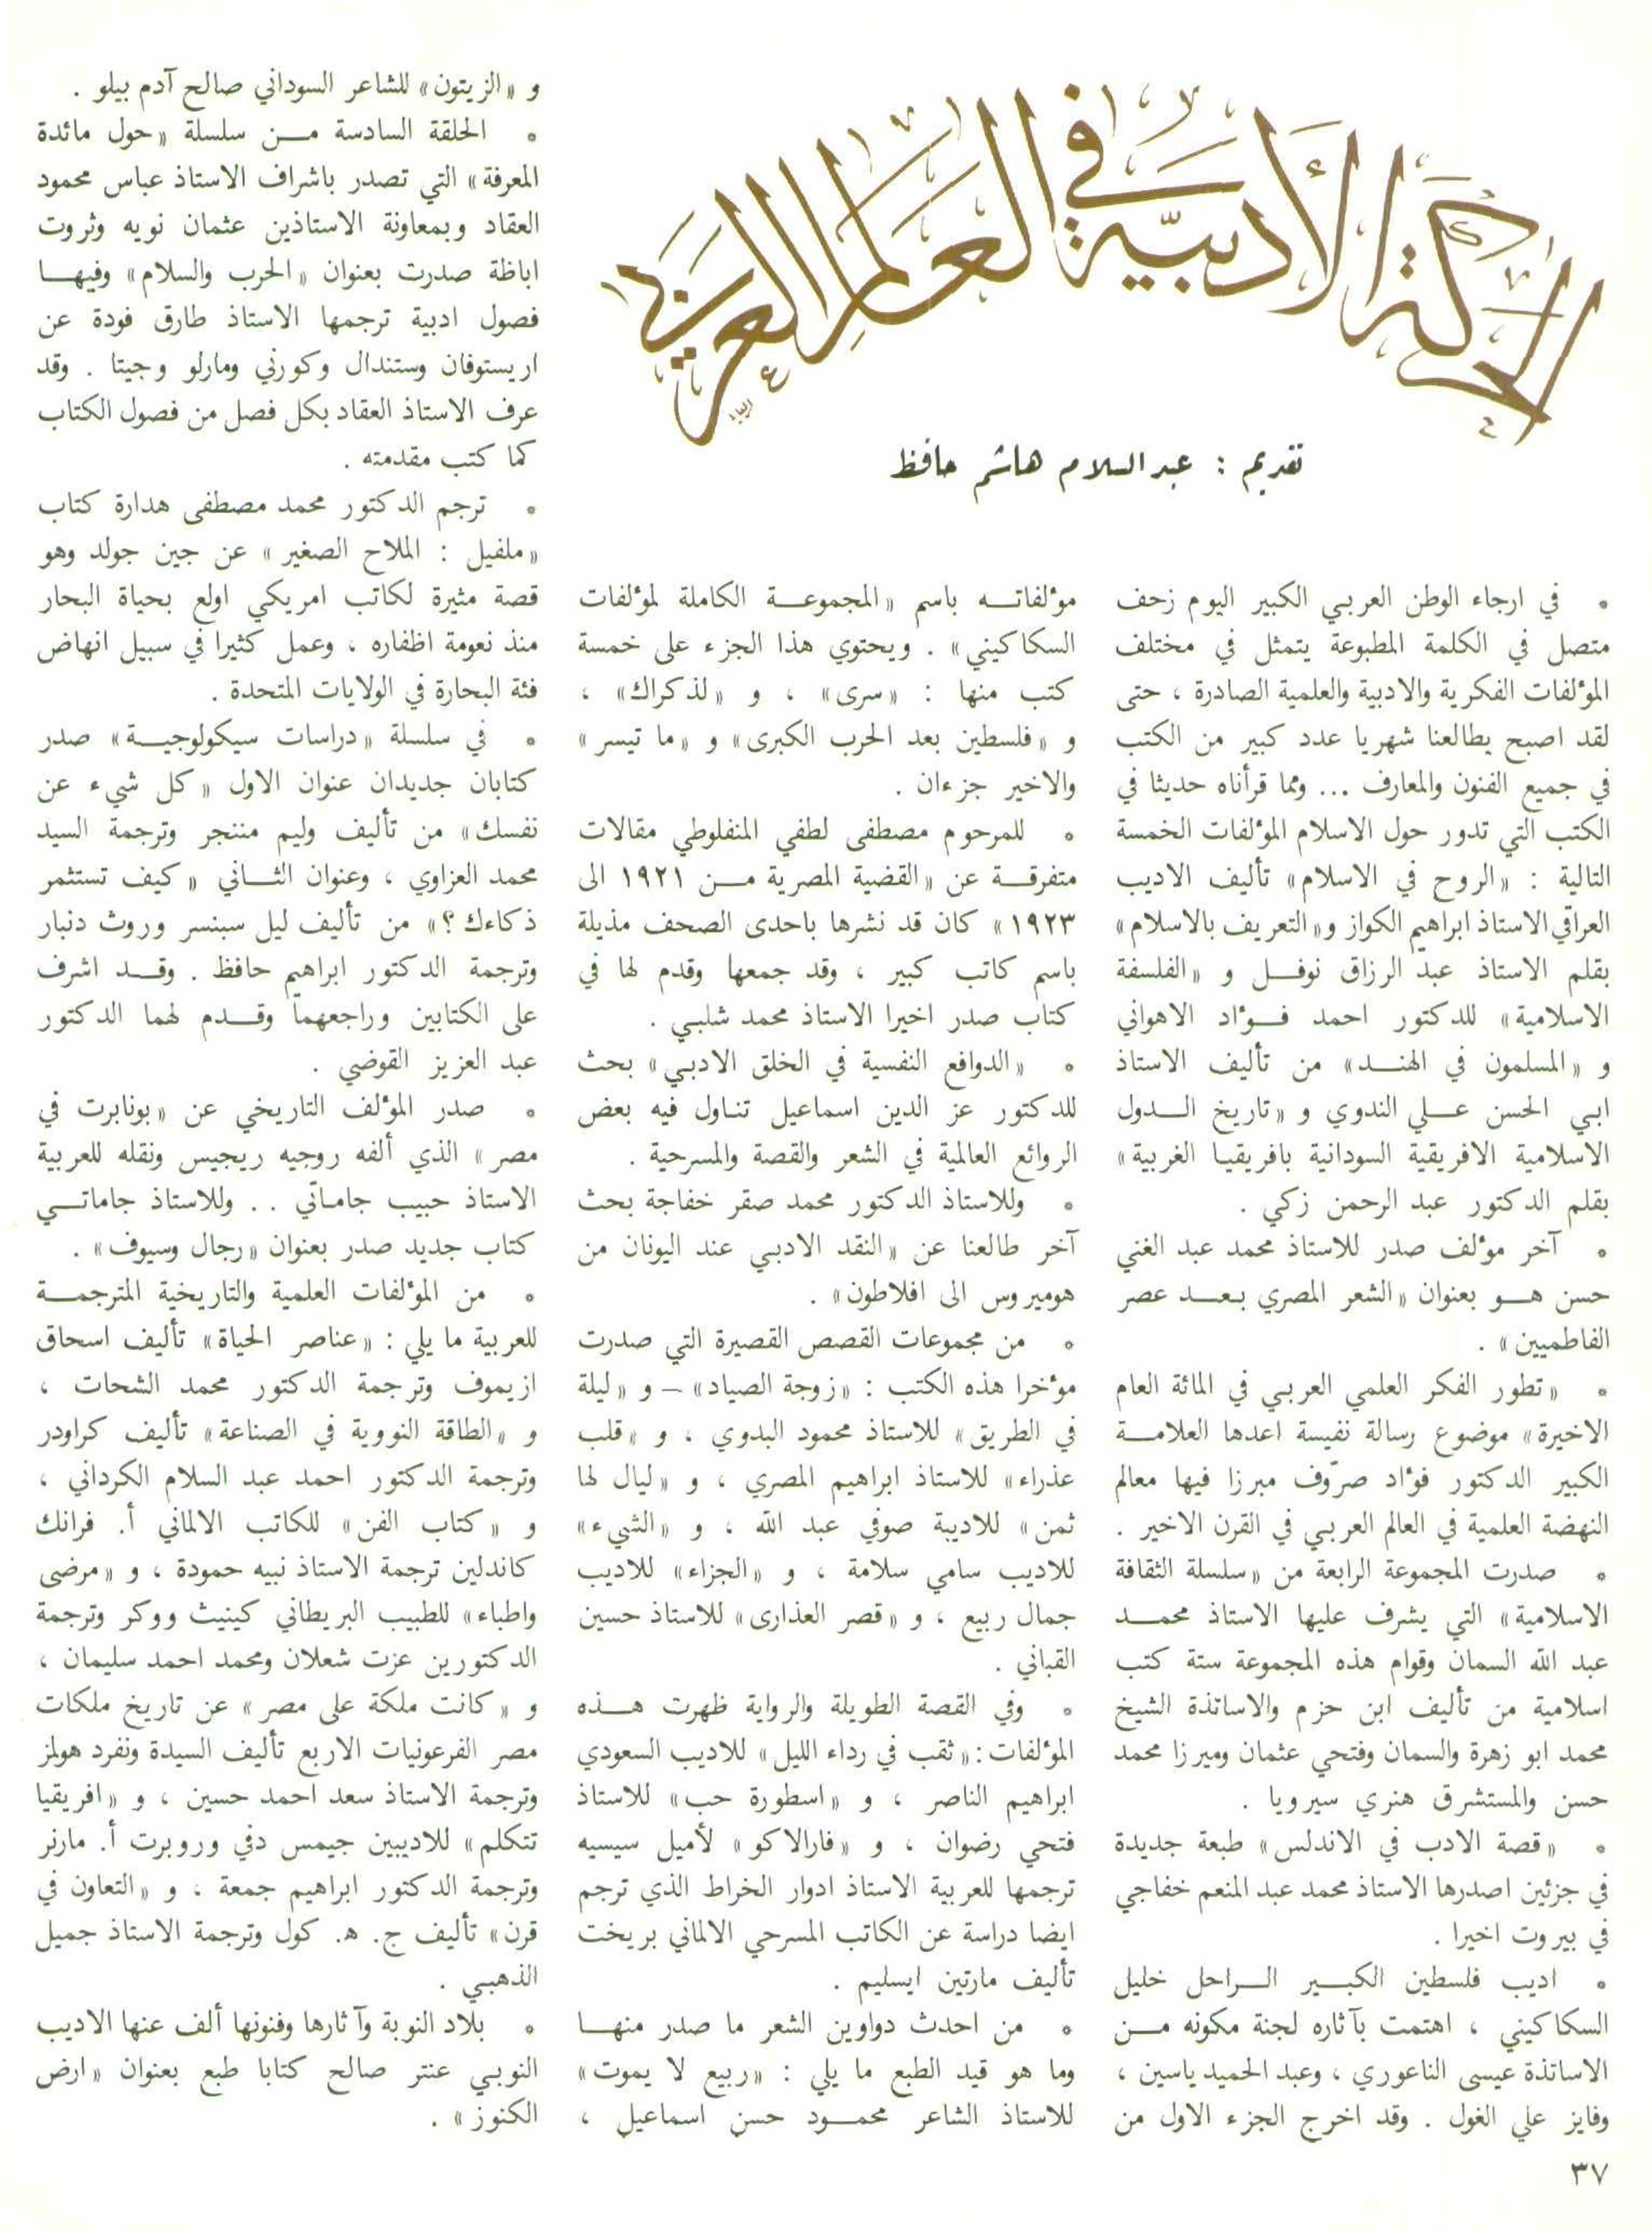 الحركة الأدبية في العالم العربي
تقديم : عبد السلام هاشم حافظ
• في ارجاء الوطن العربي الكبير اليوم زحف
متصل في الكلمة المطبوعة يتمثل في مختلف
المؤلفات الفكرية والادبية والعلمية الصادرة ، حتى
لقد اصبح يطالعنا شهريا عدد كبير من الكتب
في جميع الفنون والمعارف ... ومما قرأناه حديثا في
الكتب التي تدور حول الاسلام المؤلفات الخمسة
التالية : «الروح في الاسلام» تأليف الاديب
العراقي الاستاذ ابراهيم الكواز و«التعريف بالاسلام»
بقلم الاستاذ عبد الرزاق نوفل و «الفلسفة
الاسلامية» للدكتور احمد فؤاد الاهواني
و «المسلمون في الهند» من تأليف الاستاذ
ابي الحسن علي الندوي و «تاريخ الدول
الاسلامية الافريقية السودانية بافريقيا الغربية»
بقلم الدكتور عبد الرحمن زكي .
• آخر مؤلف صدر للاستاذ محمد عبد الغني
حسن هو بعنوان «الشعر المصري بعد عصر
الفاطميين» .
• «تطور الفكر العلمي العربي في المائة العام
الاخيرة» موضوع رسالة نفيسة اعدها العلامة
الكبير الدكتور فؤاد صرّوف مبرزا فيها معالم
النهضة العلمية في العالم العربي في القرن الاخير .
• صدرت المجموعة الرابعة من «سلسلة الثقافة
الاسلامية» التي يشرف عليها الاستاذ محمد
عبد الله السمان وقوام هذه المجموعة ستة كتب
اسلامية من تأليف ابن حزم والاساتذة الشيخ
محمد ابو زهرة والسمان وفتحي عثمان وميرزا محمد
حسن والمستشرق هنري سيرويا .
• «قصة الادب في الاندلس» طبعة جديدة
في جزئين اصدرها الاستاذ محمد عبد المنعم خفاجي
في بيروت اخيرا .
• اديب فلسطين الكبير الراحل خليل
السكاكيني ، اهتمت بآثاره لجنة مكونه من
الاساتذة عيسى الناعوري ، وعبد الحميد ياسين ،
وفايز علي الغول . وقد اخرج الجزء الاول من
مؤلفاته باسم «المجموعة الكاملة لمؤلفات
السكاكيني» . ويحتوي هذا الجزء على خمسة
كتب منها : «سرى» ، و «لذكراك» ،
و «فلسطين بعد الحرب الكبرى» و «ما تيسر»
والاخير جزءان .
• للمرحوم مصطفى لطفي المنفلوطي مقالات
متفرقة عن «القضية المصرية من ١٩٢١ الى
١٩٢٣» كان قد نشرها باحدى الصحف مذيلة
باسم كاتب كبير ، وقد جمعها وقدم لها في
كتاب صدر اخيرا الاستاذ محمد شلبي .
• «الدوافع النفسية في الخلق الادبي» بحث
للدكتور عز الدين اسماعيل تناول فيه بعض
الروائع العالمية في الشعر والقصة والمسرحية .
• وللاستاذ الدكتور محمد صقر خفاجة بحث
آخر طالعنا عن «النقد الادبي عند اليونان من
هوميروس الى افلاطون» .
• من مجموعات القصص القصيرة التي صدرت
مؤخرا هذه الكتب : «زوجة الصياد» – و «ليلة
في الطريق» للاستاذ محمود البدوي ، و «قلب
عذراء» للاستاذ ابراهيم المصري ، و «ليال لها
ثمن» للاديبة صوفي عبد الله ، و «الشيء»
للاديب سامي سلامة ، و «الجزاء» للاديب
جمال ربيع ، و «قصر العذارى» للاستاذ حسين
القباني .
• وفي القصة الطويلة والرواية ظهرت هذه
المؤلفات : «ثقب في رداء الليل» للاديب السعودي
ابراهيم الناصر ، و «اسطورة حب» للاستاذ
فتحي رضوان ، و «فارالاكو» لأميل سيسيه
ترجمها للعربية الاستاذ ادوار الخراط الذي ترجم
ايضا دراسة عن الكاتب المسرحي الالماني بريخت
تأليف مارتين ايسليم .
• من احدث دواوين الشعر ما صدر منها
وما هو قيد الطبع ما يلي : «ربيع لا يموت»
للاستاذ الشاعر محمود حسن اسماعيل ،
و «الزيتون» للشاعر السوداني صالح آدم بيلو .
• الحلقة السادسة من سلسلة «حول مائدة
المعرفة» التي تصدر باشراف الاستاذ عباس محمود
العقاد وبمعاونة الاستاذين عثمان نويه وثروت
اباظة صدرت بعنوان «الحرب والسلام» وفيها
فصول ادبية ترجمها الاستاذ طارق فودة عن
اريستوفان وستندال وكورني ومارلو وجيتا . وقد
عرف الاستاذ العقاد بكل فصل من فصول الكتاب
كما كتب مقدمته .
• ترجم الدكتور محمد مصطفى هدارة كتاب
«ملفيل : الملاح الصغير» عن جين جولد وهو
قصة مثيرة لكاتب امريكي اولع بحياة البحار
منذ نعومة اظفاره ، وعمل كثيرا في سبيل انهاض
فئة البحارة في الولايات المتحدة .
• في سلسلة «دراسات سيكولوجية» صدر
كتابان جديدان عنوان الاول «كل شيء عن
نفسك» من تأليف وليم مننجر وترجمة السيد
محمد العزاوي ، وعنوان الثاني «كيف تستثمر
ذكاءك ؟» من تأليف ليل سبنسر وروث دنبار
وترجمة الدكتور ابراهيم حافظ . وقد اشرف
على الكتابين وراجعهما وقدم لهما الدكتور
عبد العزيز القوضي .
• صدر المؤلف التاريخي عن «بونابرت في
مصر» الذي ألفه روجيه ريجيس ونقله للعربية
الاستاذ حبيب جاماتي . . وللاستاذ جاماتي
كتاب جديد صدر بعنوان «رجال وسيوف» .
• من المؤلفات العلمية والتاريخية المترجمة
للعربية ما يلي : «عناصر الحياة» تأليف اسحاق
ازيموف وترجمة الدكتور محمد الشحات ،
و «الطاقة النووية في الصناعة» تأليف كراودر
وترجمة الدكتور احمد عبد السلام الكرداني ،
و «كتاب الفن» للكاتب الالماني أ. فرانك
كاندلين ترجمة الاستاذ نبيه حمودة ، و «مرضى
واطباء» للطبيب البريطاني كينيث ووكر وترجمة
الدكتورين عزت شعلان ومحمد احمد سليمان ،
و «كانت ملكة على مصر» عن تاريخ ملكات
مصر الفرعونيات الاربع تأليف السيدة ونفرد هولمز
وترجمة الاستاذ سعد احمد حسين ، و «افريقيا
تتكلم» للاديبين جيمس دفي وروبرت أ. مارنر
وترجمة الدكتور ابراهيم جمعة ، و «التعاون في
قرن» تأليف ج. ه. كول وترجمة الاستاذ جميل
الذهبي .
• بلاد النوبة وآثارها وفنونها ألف عنها الاديب
النوبي عنتر صالح كتابا طبع بعنوان «ارض
الكنوز» .
٣٧